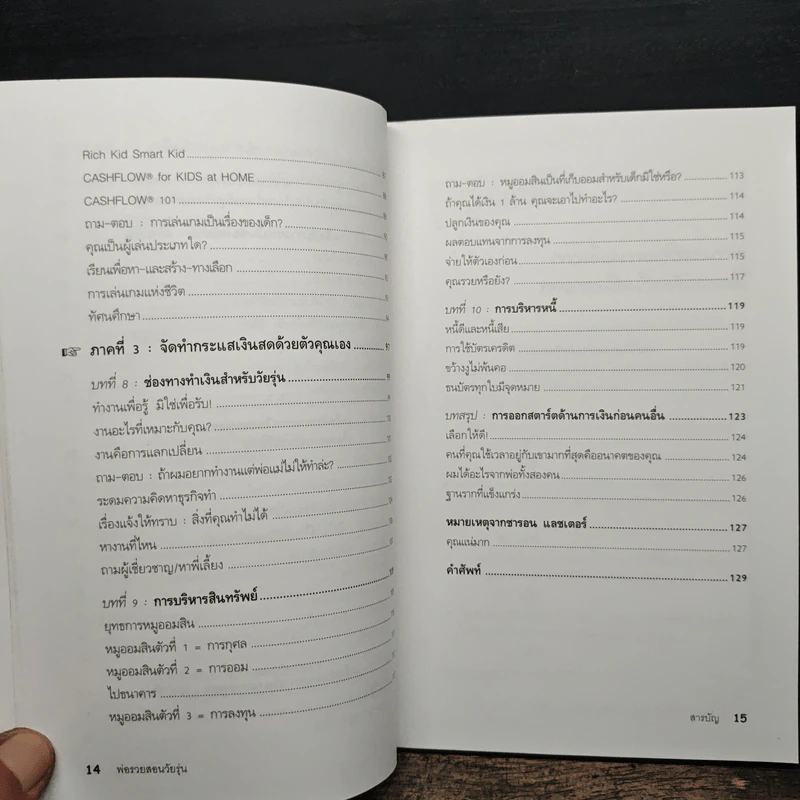 Rich Kid Smart Kid
CASHFLOW® for KIDS at HOME
CASHFLOW® 101
ถาม-ตอบ : การเล่นเกมเป็นเรื่องของเด็ก?
คุณเป็นผู้เล่นประเภทใด?
เรียนเพื่อหา-และสร้าง-ทางเลือก
การเล่นเกมแห่งชีวิต
ทัศนศึกษา
ภาคที่ 3 : จัดทำกระแสเงินสดด้วยตัวคุณเอง
บทที่ 8 : ช่องทางทำเงินสำหรับวัยรุ่น
ทำงานเพื่อรู้ มิใช่เพื่อรับ!
งานอะไรที่เหมาะกับคุณ?
งานคือการแลกเปลี่ยน
ถาม-ตอบ : ถ้าผมอยากทำงานแต่พ่อแม่ไม่ให้ทำล่ะ?
ระดมความคิดหาธุรกิจทำ
เรื่องแจ้งให้ทราบ : สิ่งที่คุณทำไม่ได้
หางานที่ไหน
ถามผู้เชี่ยวชาญ/หาพี่เลี้ยง
บทที่ 9 : การบริหารสินทรัพย์
ยุทธการหมูออมสิน
หมูออมสินตัวที่ 1 = การกุศล
หมูออมสินตัวที่ 2 = การออม
ไปธนาคาร
หมูออมสินตัวที่ 3 = การลงทุน
14 พ่อรวยสอนวัยรุ่น
ถาม-ตอบ : หมูออมสินเป็นที่เก็บออมสำหรับเด็กมิใช่หรือ? 113
ถ้าคุณได้เงิน 1 ล้าน คุณจะเอาไปทำอะไร? 114
ปลูกเงินของคุณ 114
ผลตอบแทนจากการลงทุน 115
จ่ายให้ตัวเองก่อน 115
คุณรวยหรือยัง? 117
บทที่ 10 : การบริหารหนี้ 119
หนี้ดีและหนี้เสีย 119
การใช้บัตรเครดิต 119
ขว้างงูไม่พ้นคอ 120
ธนบัตรทุกใบมีจุดหมาย 121
บทสรุป : การออกสตาร์ตด้านการเงินก่อนคนอื่น 123
เลือกให้ดี! 124
คนที่คุณใช้เวลาอยู่กับเขามากที่สุดคืออนาคตของคุณ 124
ผมได้อะไรจากพ่อทั้งสองคน 126
ฐานรากที่แข็งแกร่ง 126
หมายเหตุจากชารอน แลชเตอร์ 127
คุณแน่มาก 127
คำศัพท์ 129
สารบัญ 15